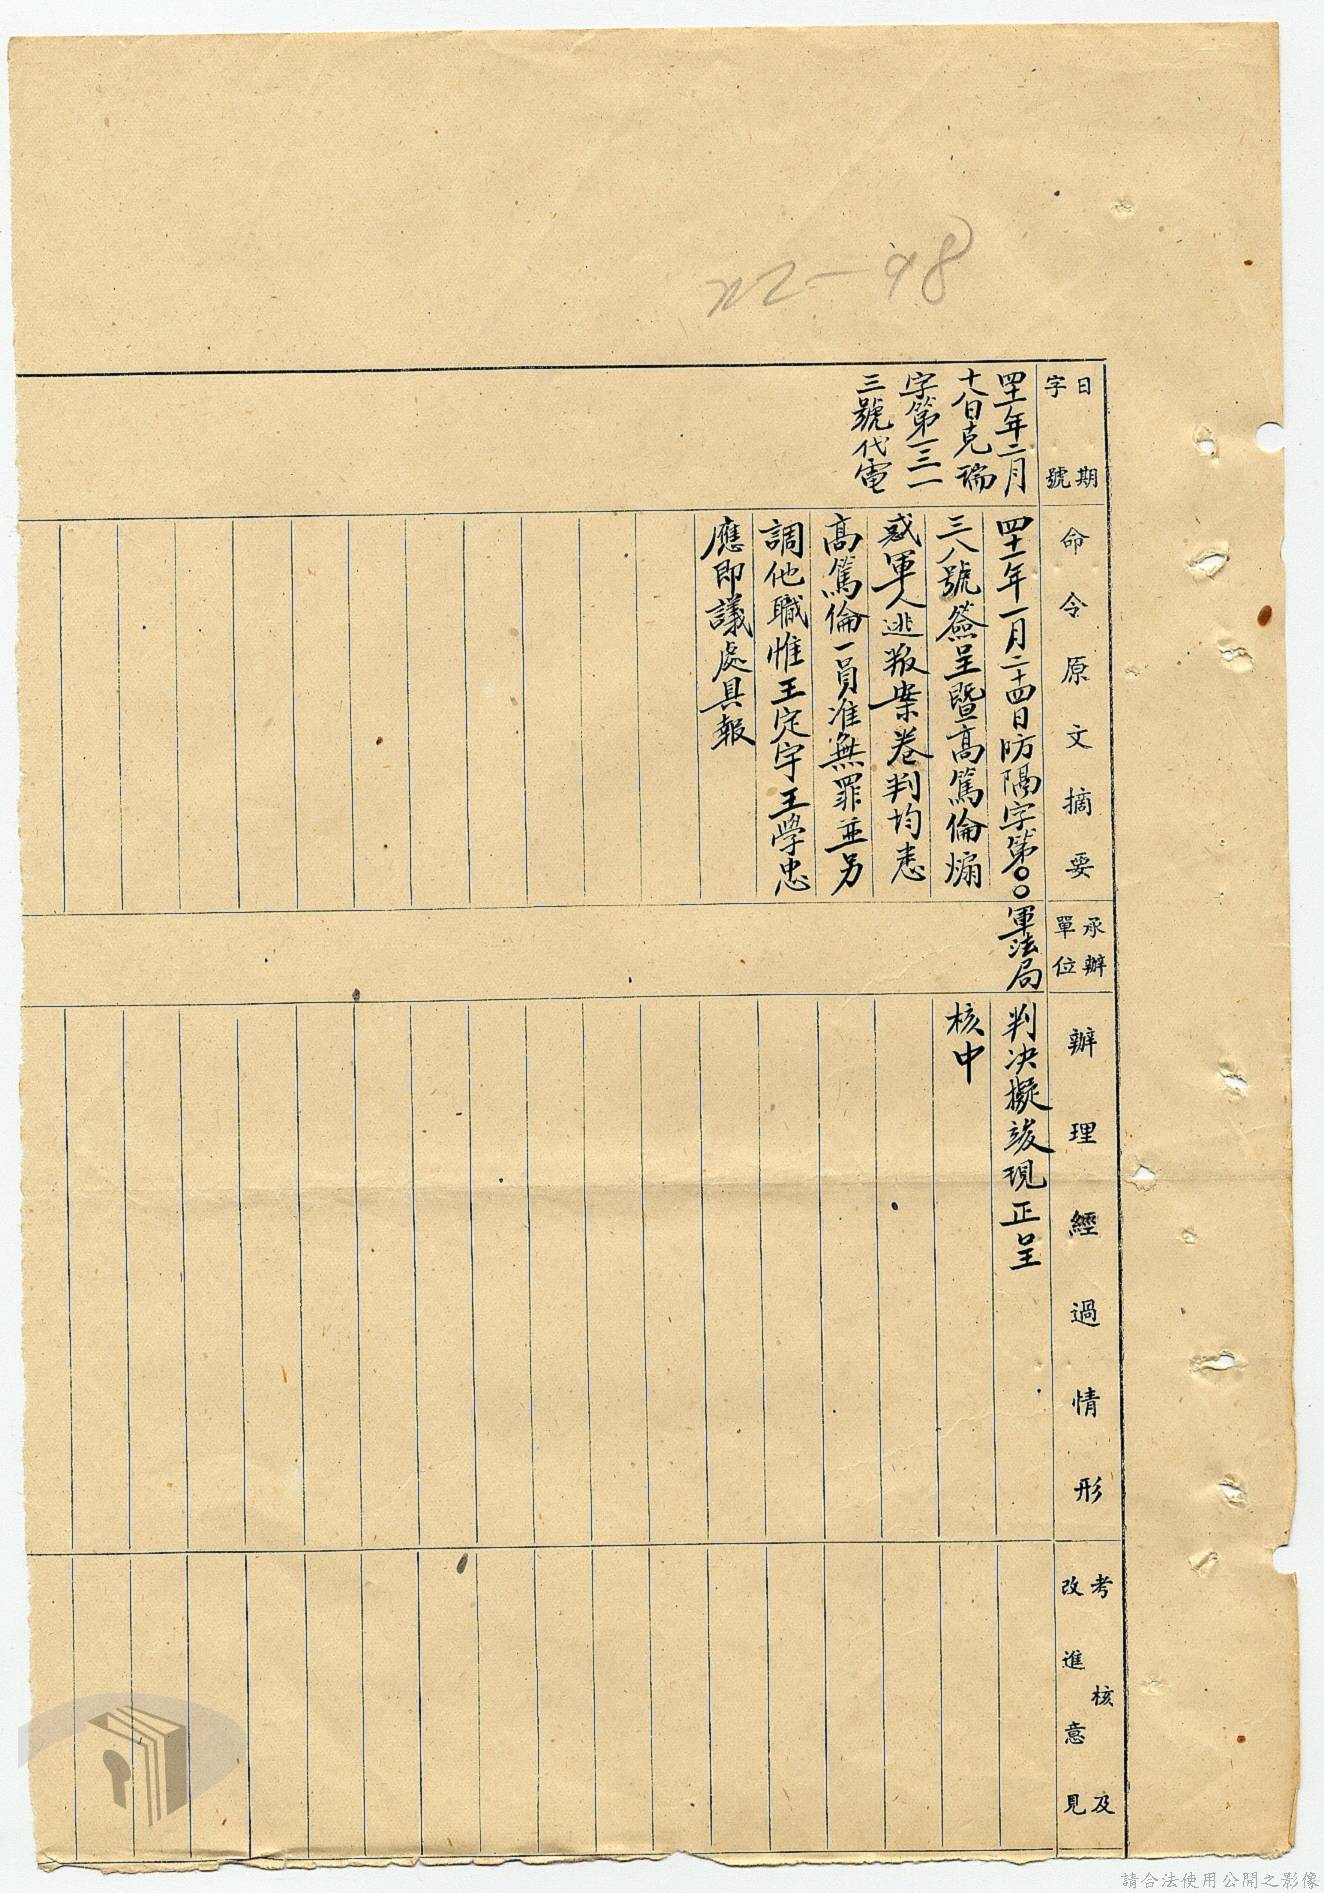 22-98
日期
字號
四十一年二月
十八日克瑞
字第一三一
三號代電
命令原文摘要
四十一年一月二十四日防隔字第〇〇
三八號簽呈暨高篤倫煽
惑軍人逃叛案卷判均悉
高篤倫一員准無罪並另
調他職惟王定宇王學忠
應即議處具報
承辦
單位
軍法局
辦理經過情形
判決擬竣現正呈
核中
考核及
改進意見
請合法使用公開之影像